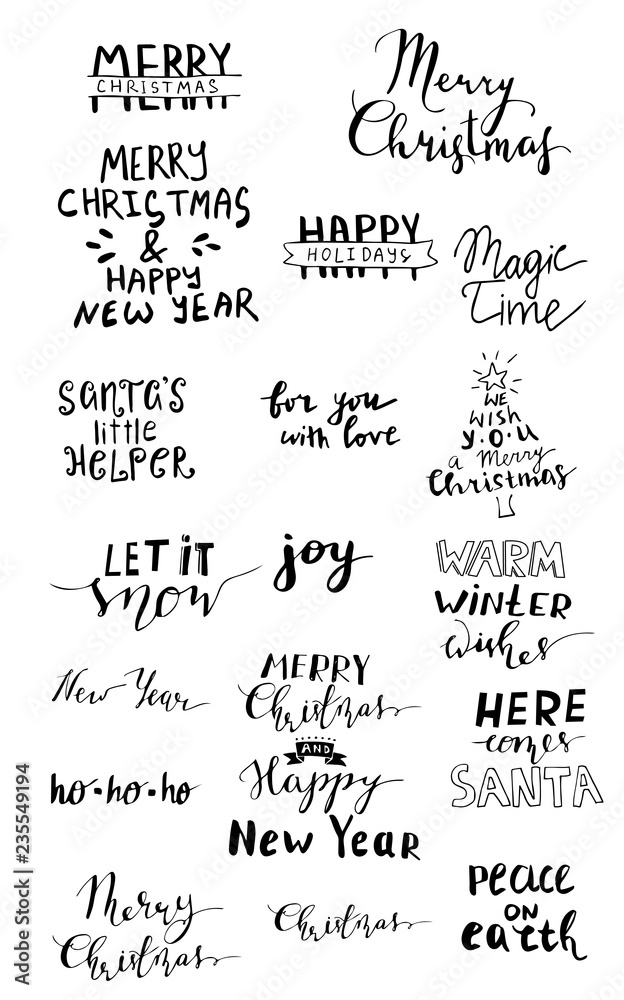 MERRY
CHRISTMAS
Merry
Christmas
MERRY
CHRISTMAS
&
HAPPY
NEW YEAR
HAPPY
HOLIDAYS
Magic
Time
SANTA'S
little
HELPER
for you
with love
WE
WISH
Y.O.U
a Merry
Christmas
LET iT
snow
joy
WARM
WINTER
wishes
New Year
MERRY
Christmas
AND
Happy
New Year
HERE
comes
SANTA
ho-ho-ho
Merry
Christmas
Christmas
peace
ON
earth
Adobe Stock | #235549194